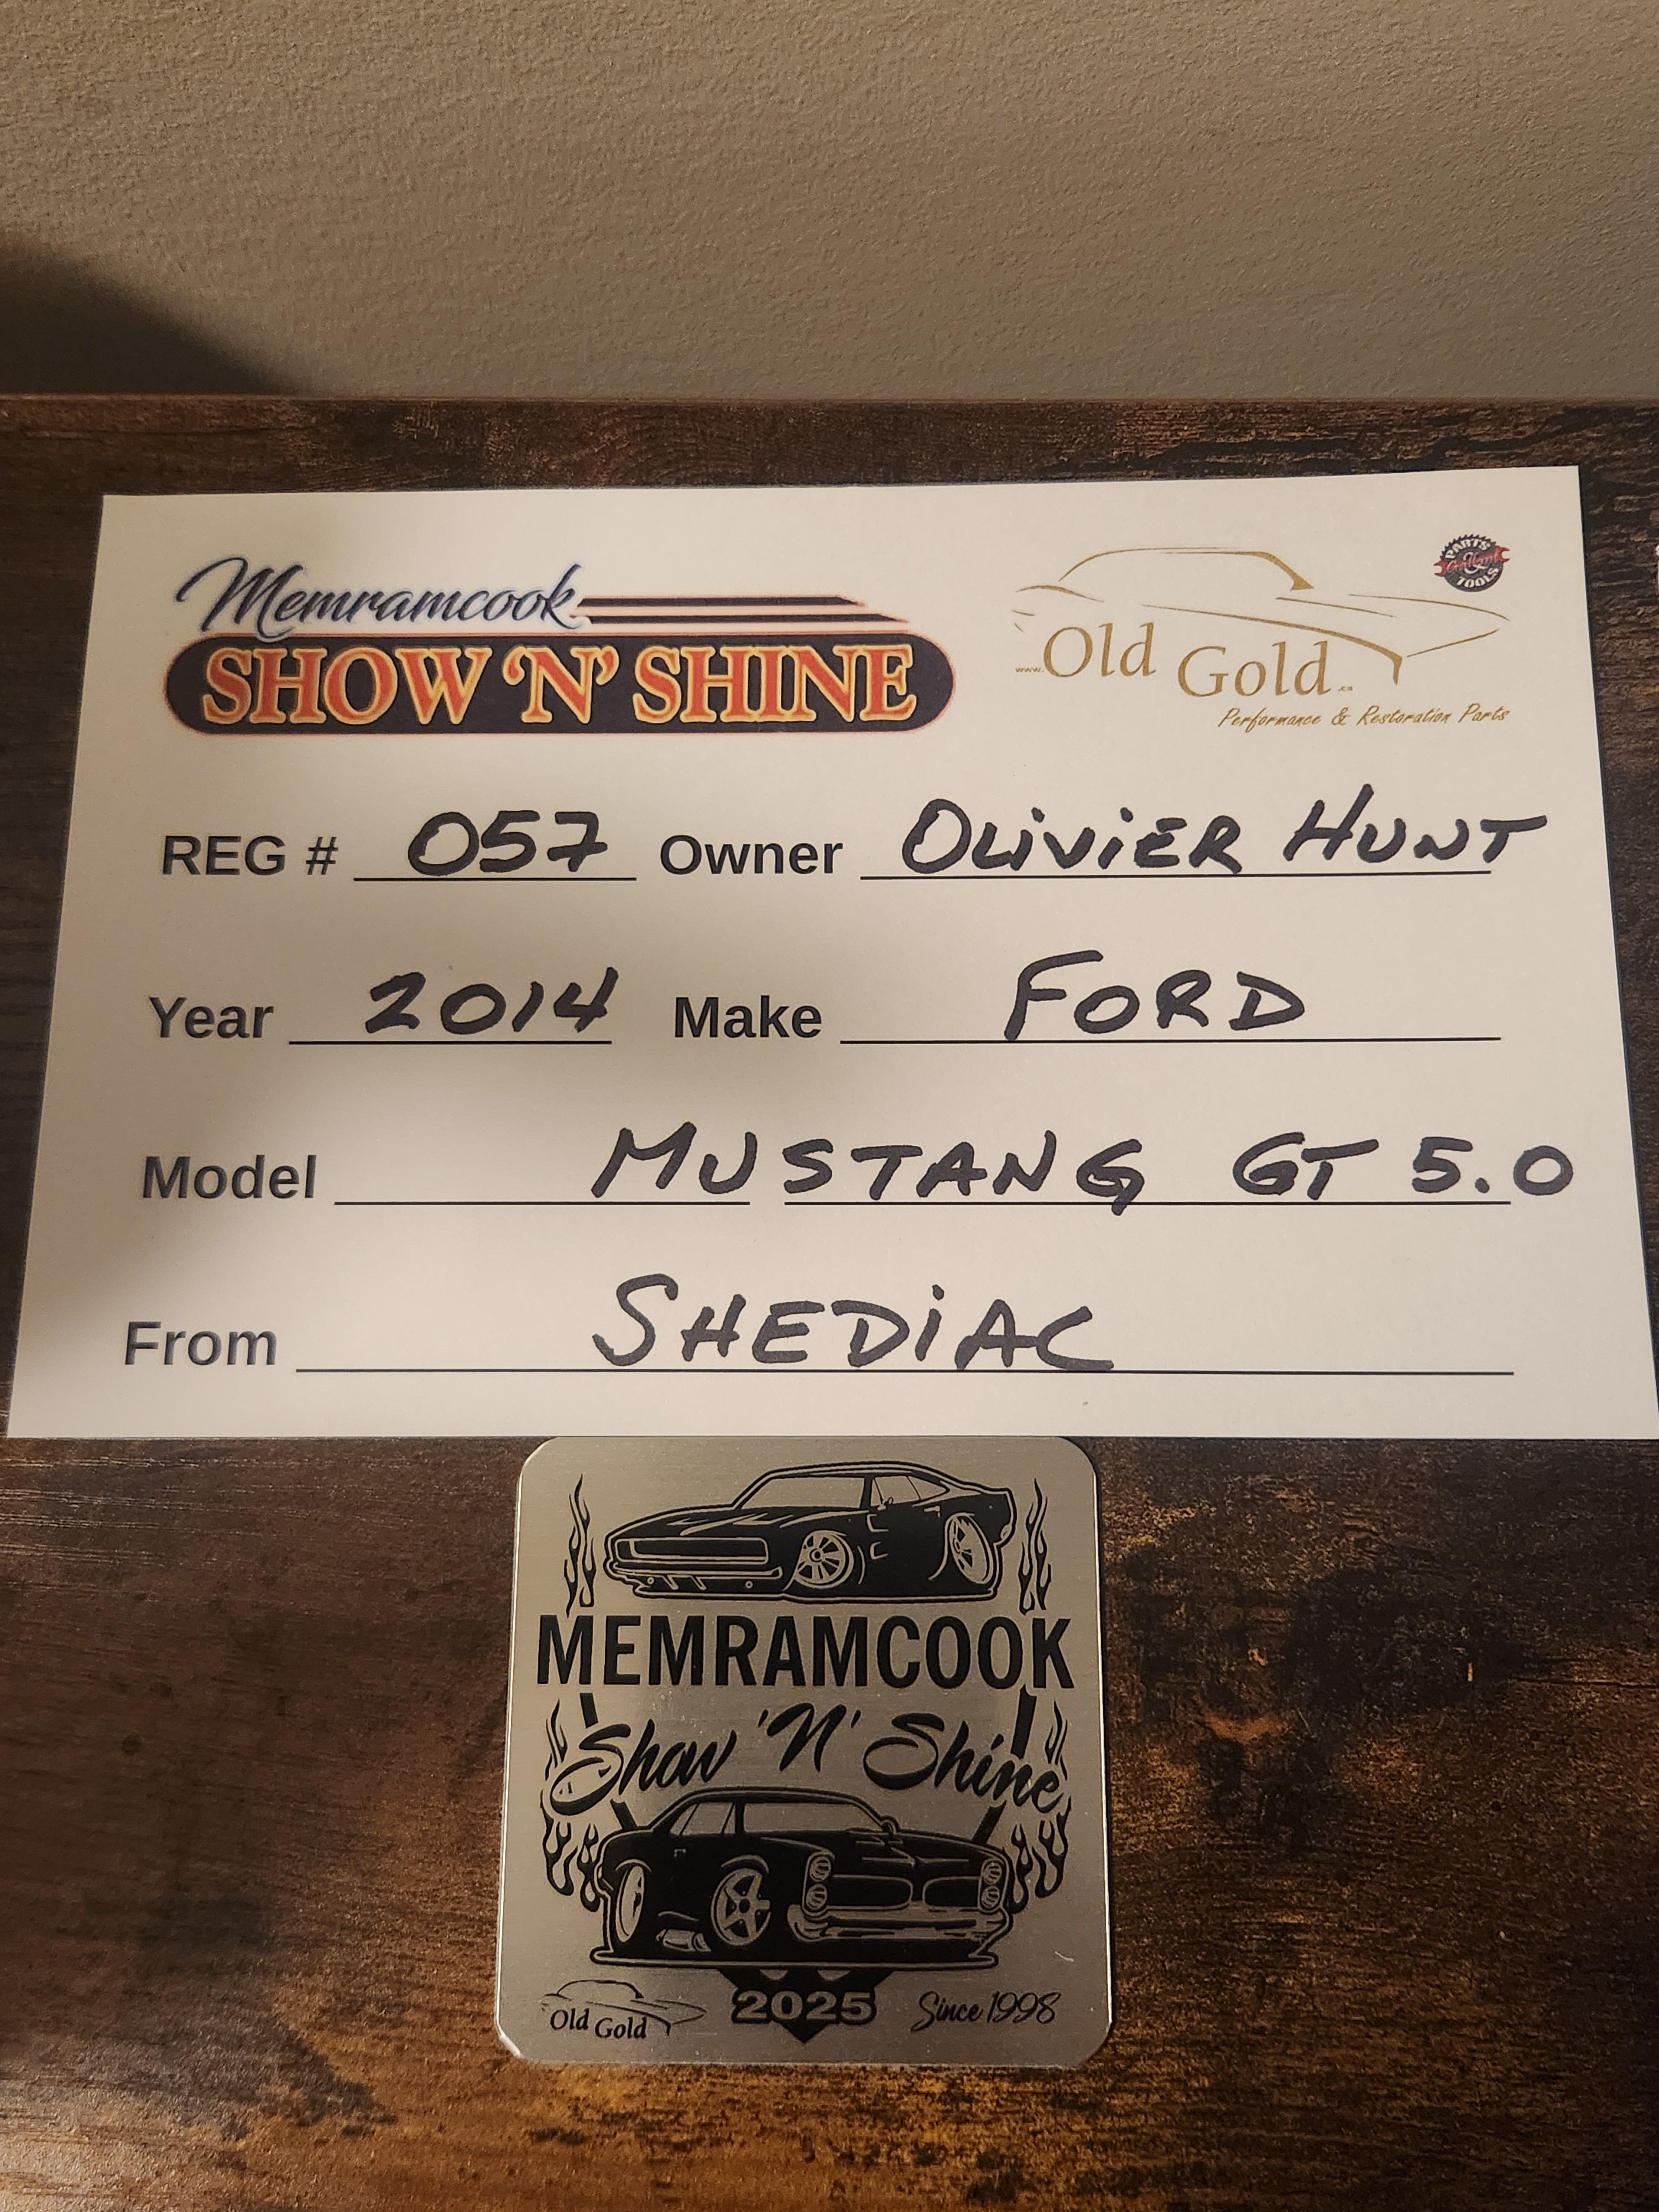 Memramcook
SHOW 'N' SHINE
PARTS
Gallant
&
TOOLS
www.Old Gold.ca
Performance & Restoration Parts
REG # 057 Owner OLiViER HUNT
Year 2014 Make FORD
Model MUSTANG GT 5.0
From SHEDiAC
MEMRAMCOOK
Show 'N' Shine
Old Gold 2025 Since 1998